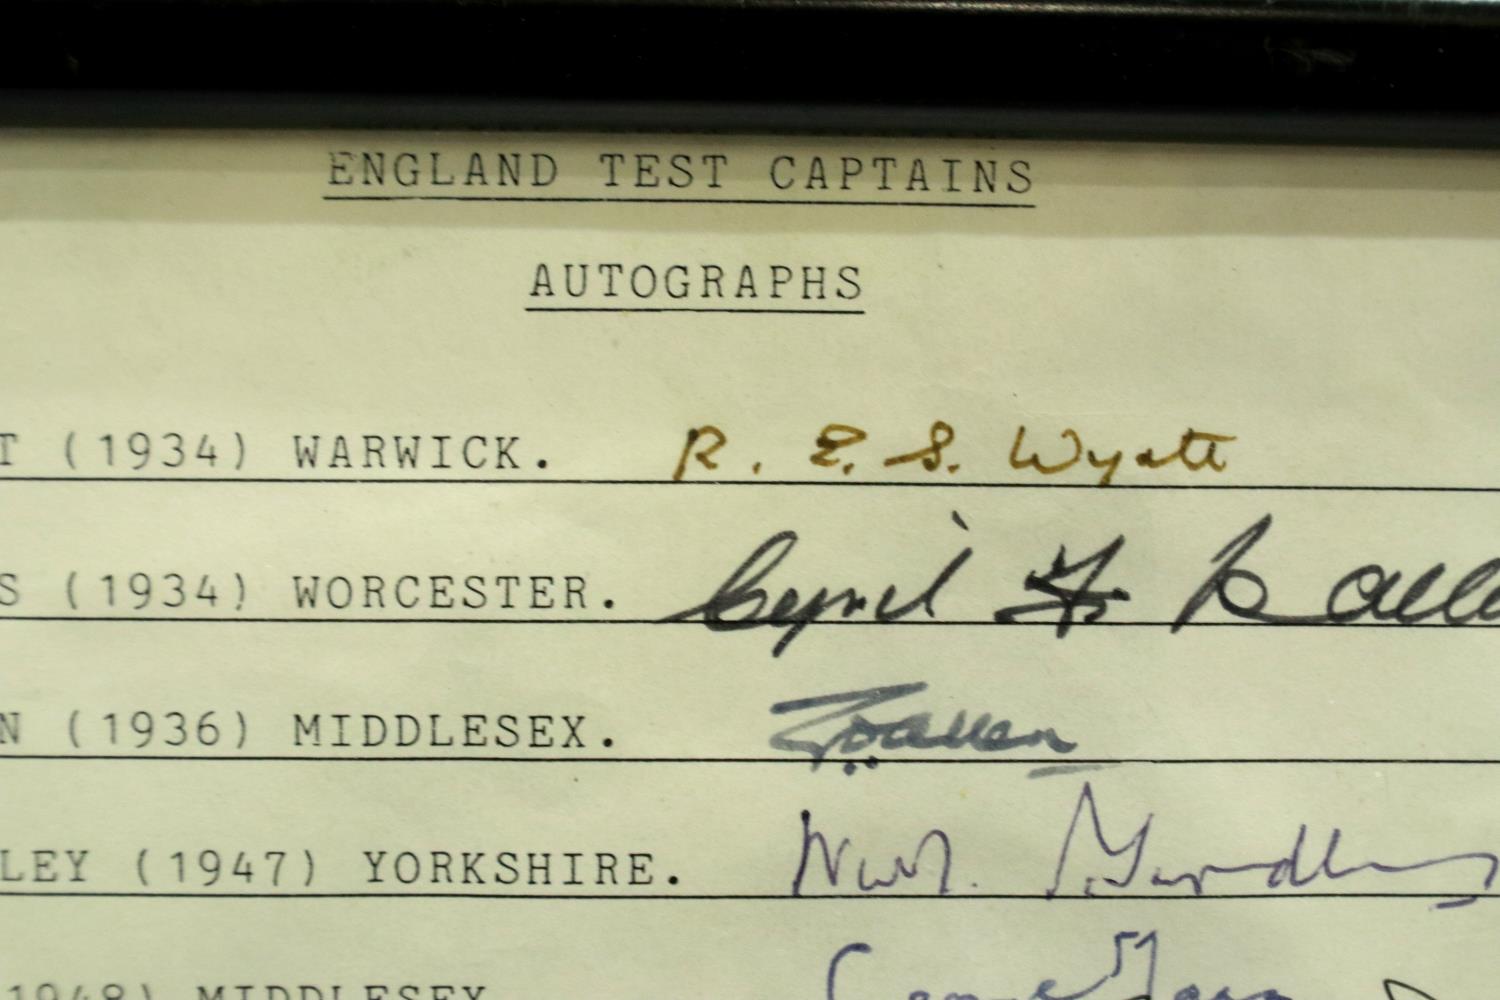 ENGLAND TEST CAPTAINS
AUTOGRAPHS
T (1934) WARWICK. R. E. S. Wyatt
S (1934) WORCESTER. Cyril F.
N (1936) MIDDLESEX. Allen
LEY (1947) YORKSHIRE.
1948) MIDDLESEX